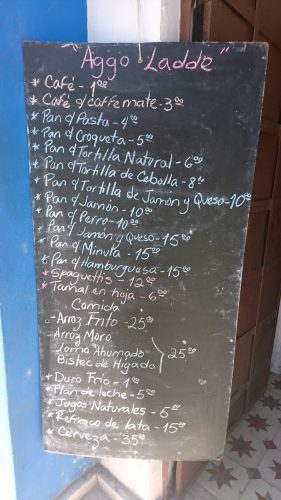 "Aggo Ladde"
* Café - 1⁰⁰
* Café c/coffemate - 3⁰⁰
* Pan c/Pasta - 4⁰⁰
* Pan c/Croqueta - 5⁰⁰
* Pan c/Tortilla Natural - 6⁰⁰
* Pan c/Tortilla de Cebolla - 8⁰⁰
* Pan c/Tortilla de Jamón y Queso - 10⁰⁰
* Pan c/Jamón - 10⁰⁰
* Pan c/Perro - 10⁰⁰
* Pan c/Jamón y Queso - 15⁰⁰
* Pan c/Minuta - 15⁰⁰
* Pan c/Hamburguesa - 15⁰⁰
* Spaguettis - 12⁰⁰
* Tamal en hoja - 6⁰⁰
Comida
- Arroz Frito - 25⁰⁰
- Arroz Moro
Lomo Ahumado 25⁰⁰
Bistec de Higado
* Duro Frio - 1⁰⁰
* Flan de leche - 5⁰⁰
* Jugos Naturales - 5⁰⁰
* Refresco de lata - 15⁰⁰
* Cerveza - 35⁰⁰